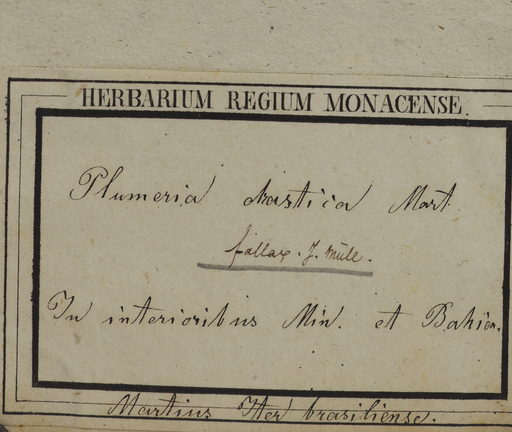 HERBARIUM REGIUM MONACENSE.
Plumeria drastica Mart
fallax. J. Müll.
In interioribus Min. et Bahien.
Martius Iter brasiliense.